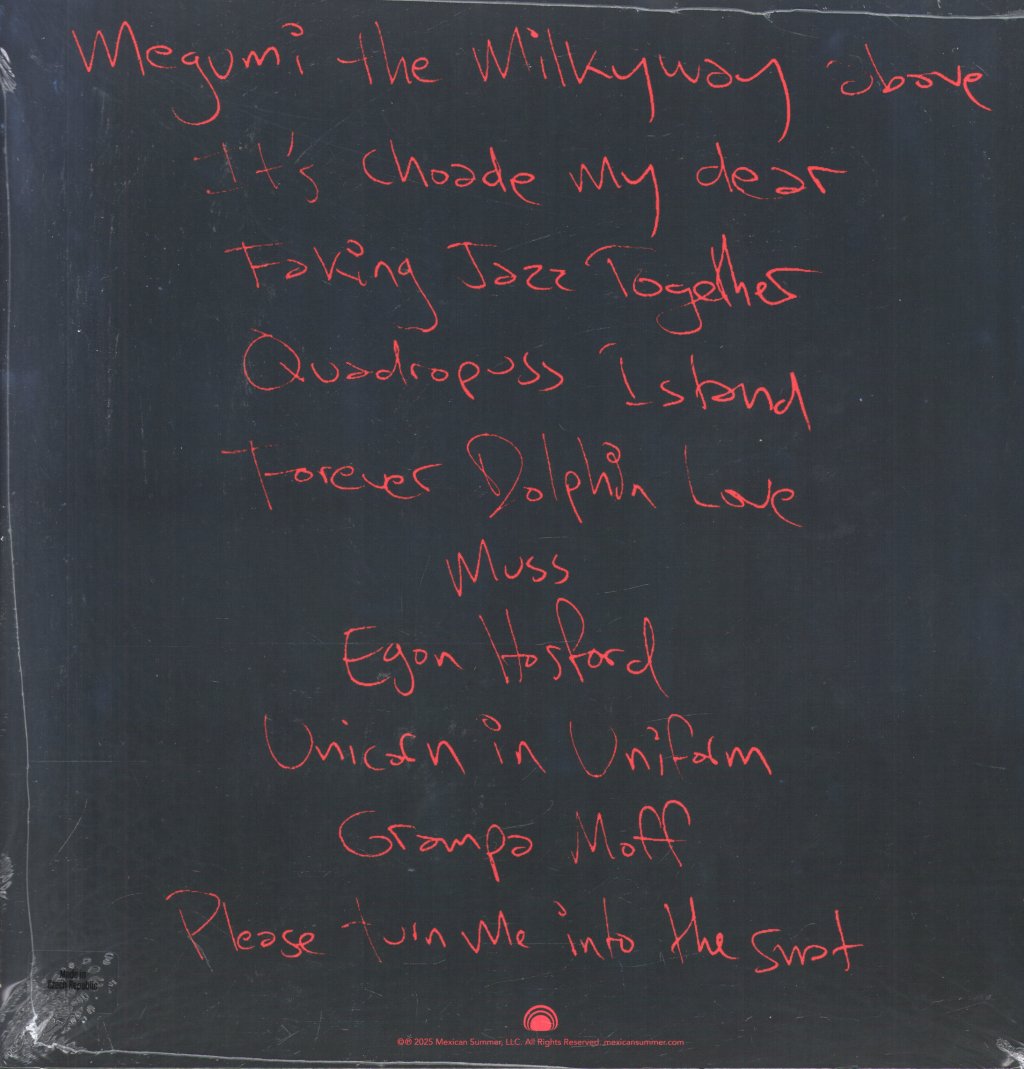 Megumi the Milkyway above
It's choade my dear
Faking Jazz Together
Quadropuss Island
Forever Dolphin Love
Muss
Egon Hosford
Unicorn in Uniform
Grampa Moff
Please turn Me into the Snat
Made in
Czech Republic
©℗ 2025 Mexican Summer, LLC. All Rights Reserved. mexicansummer.com